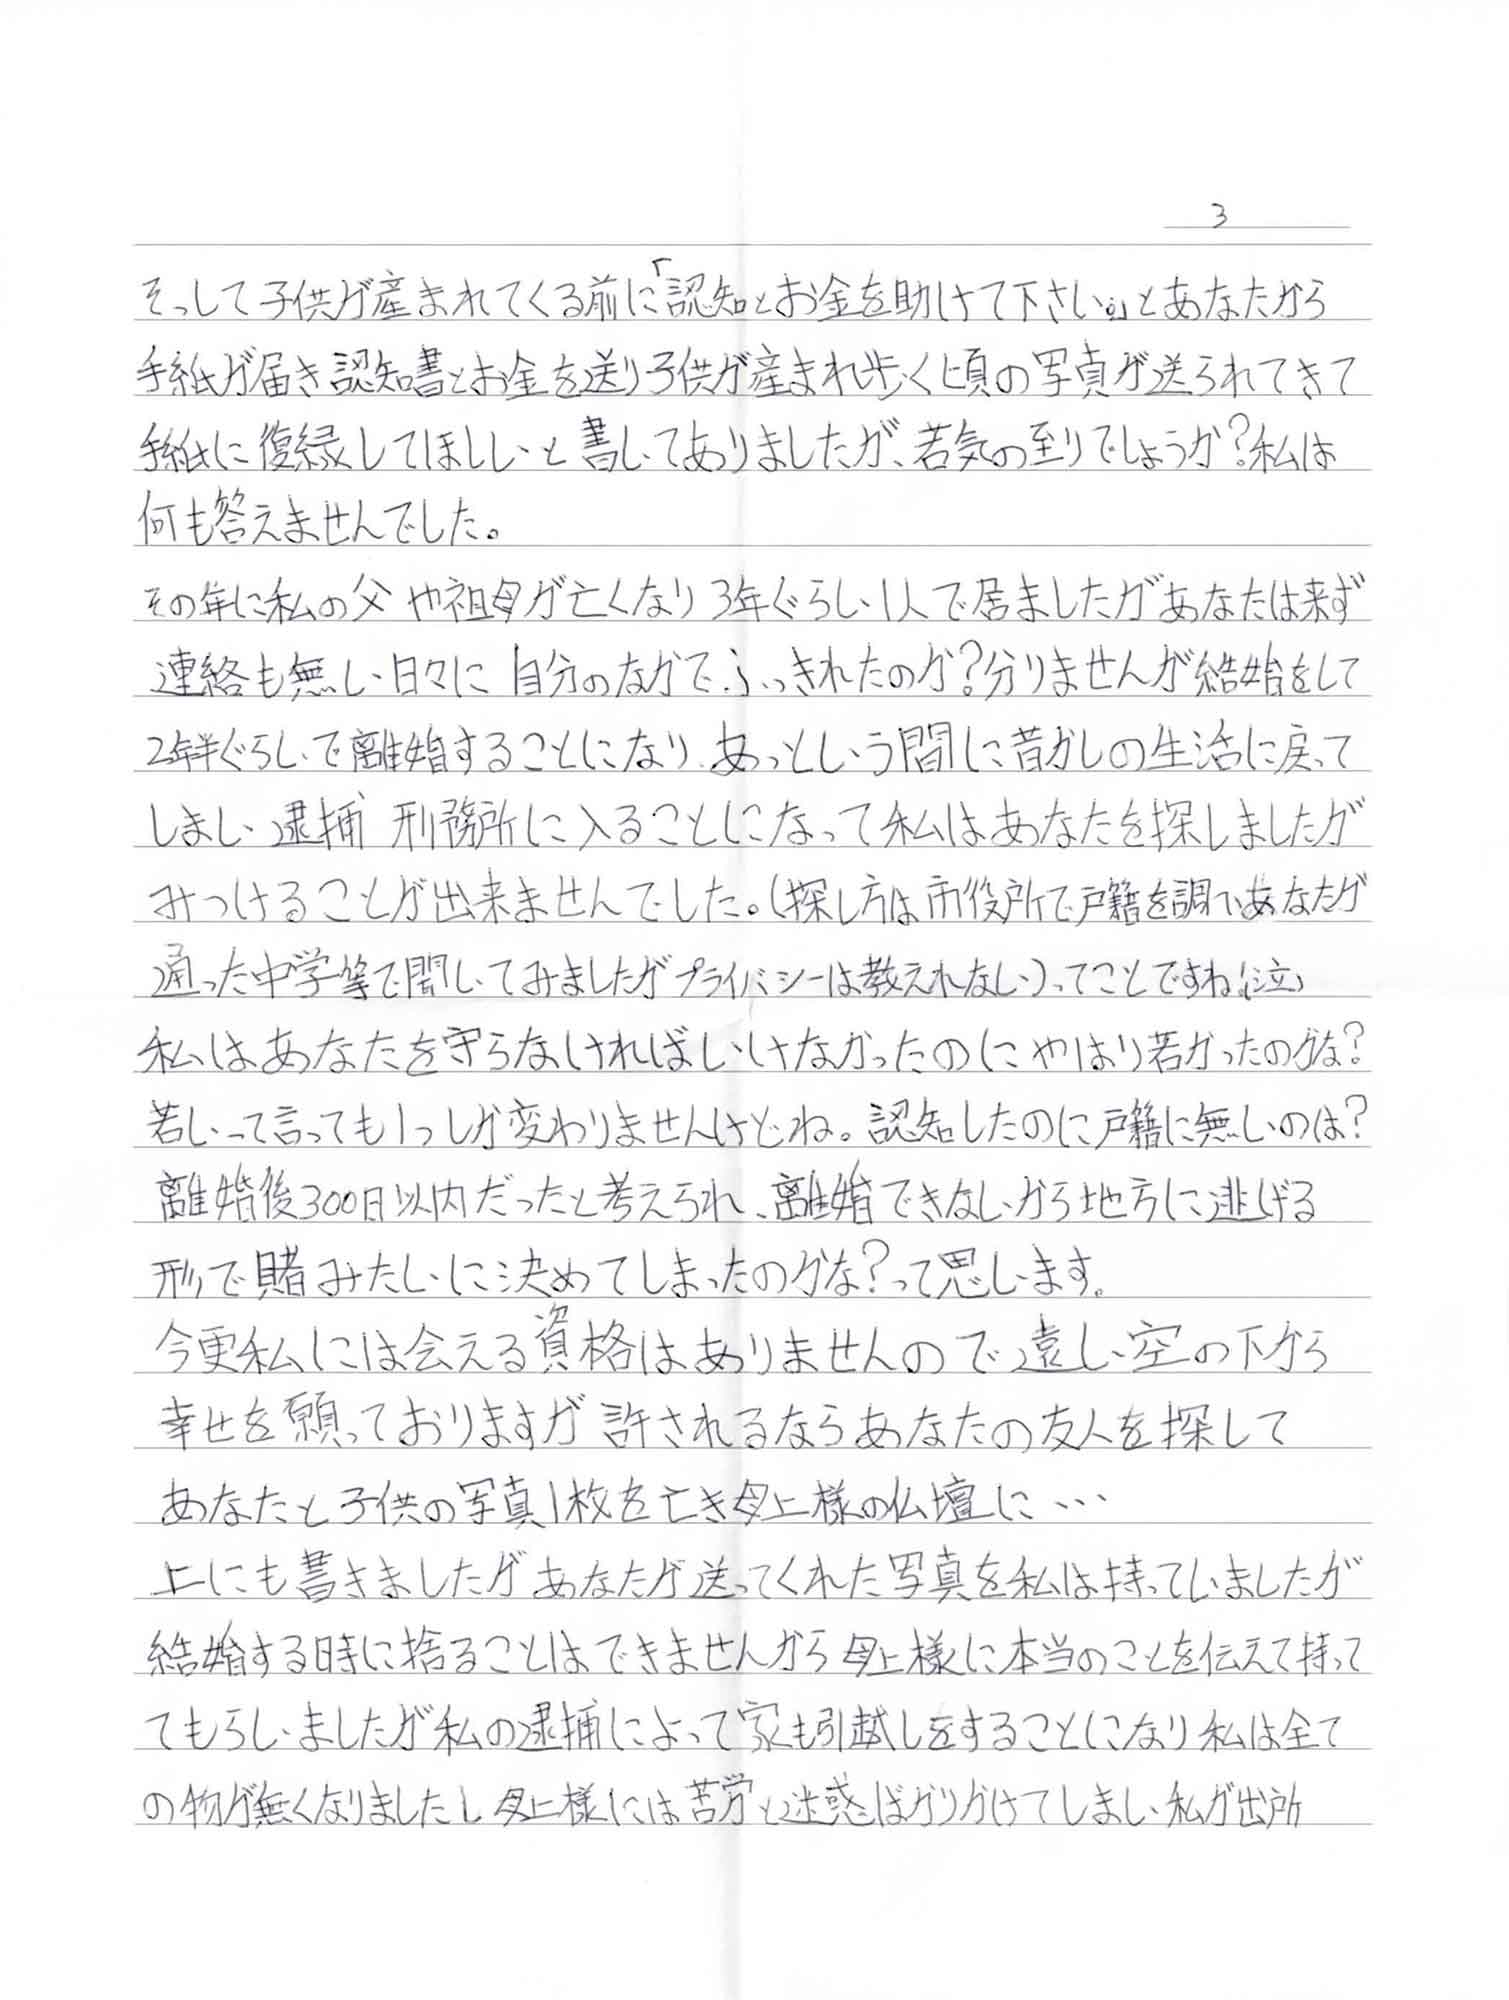 3
そして子供が産まれてくる前に「認知とお金を助けて下さい。」とあなたから
手紙が届き認知書とお金を送り子供が産まれ歩く頃の写真が送られてきて
手紙に復縁してほしいと書いてありましたが、若気の至りでしょうか?私は
何も答えませんでした。
その年に私の父や祖母が亡くなり3年ぐらい1人で居ましたがあなたは来ず
連絡も無い日々に自分のなかでふっきれたのか?分りませんが結婚をして
2年半ぐらいで離婚することになり、あっという間に昔かしの生活に戻って
しまい逮捕 刑務所に入ることになって私はあなたを探しましたが
みつけることが出来ませんでした。(探し方は市役所で戸籍を調べあなたが
通った中学等で聞いてみましたがプライバシーは教えれない)ってことですね(泣)
私はあなたを守らなければいけなかったのにやはり若かったのかな?
若いって言っても1つしか変わりませんけどね。認知したのに戸籍に無いのは?
離婚後300日以内だったと考えられ、離婚できないから地方に逃げる
形で賭みたいに決めてしまったのかな?って思います。
今更私には会える資格はありませんので遠い空の下から
幸せを願っておりますが許されるならあなたの友人を探して
あなたと子供の写真1枚を亡き母上様の仏壇に…
上にも書きましたがあなたが送ってくれた写真を私は持っていましたが
結婚する時に捨ることはできませんから母上様に本当のことを伝えて持って
てもらいましたが私の逮捕によって家も引越しをすることになり私は全て
の物が無くなりましたし母上様には苦労と迷惑ばかりかけてしまい私が出所